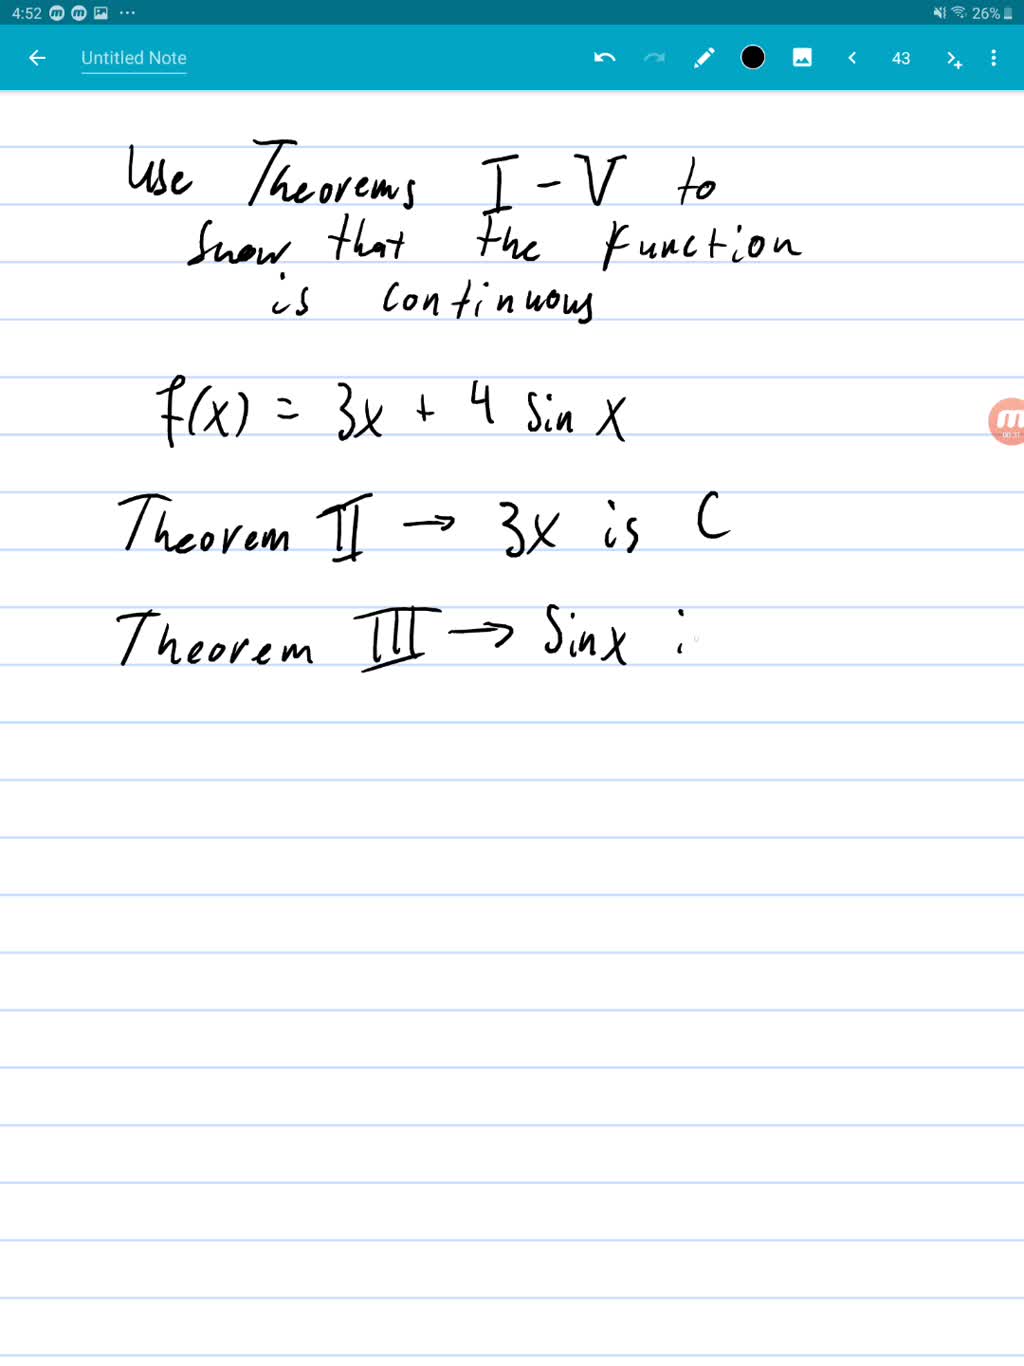 4:52 m m ... 26%
Untitled Note 43
Use Theorems I - V to
show that the function
is continuous
f(x) = 3x + 4 sin x
Theorem II → 3x is C
Theorem III → sin x i
m
00:31